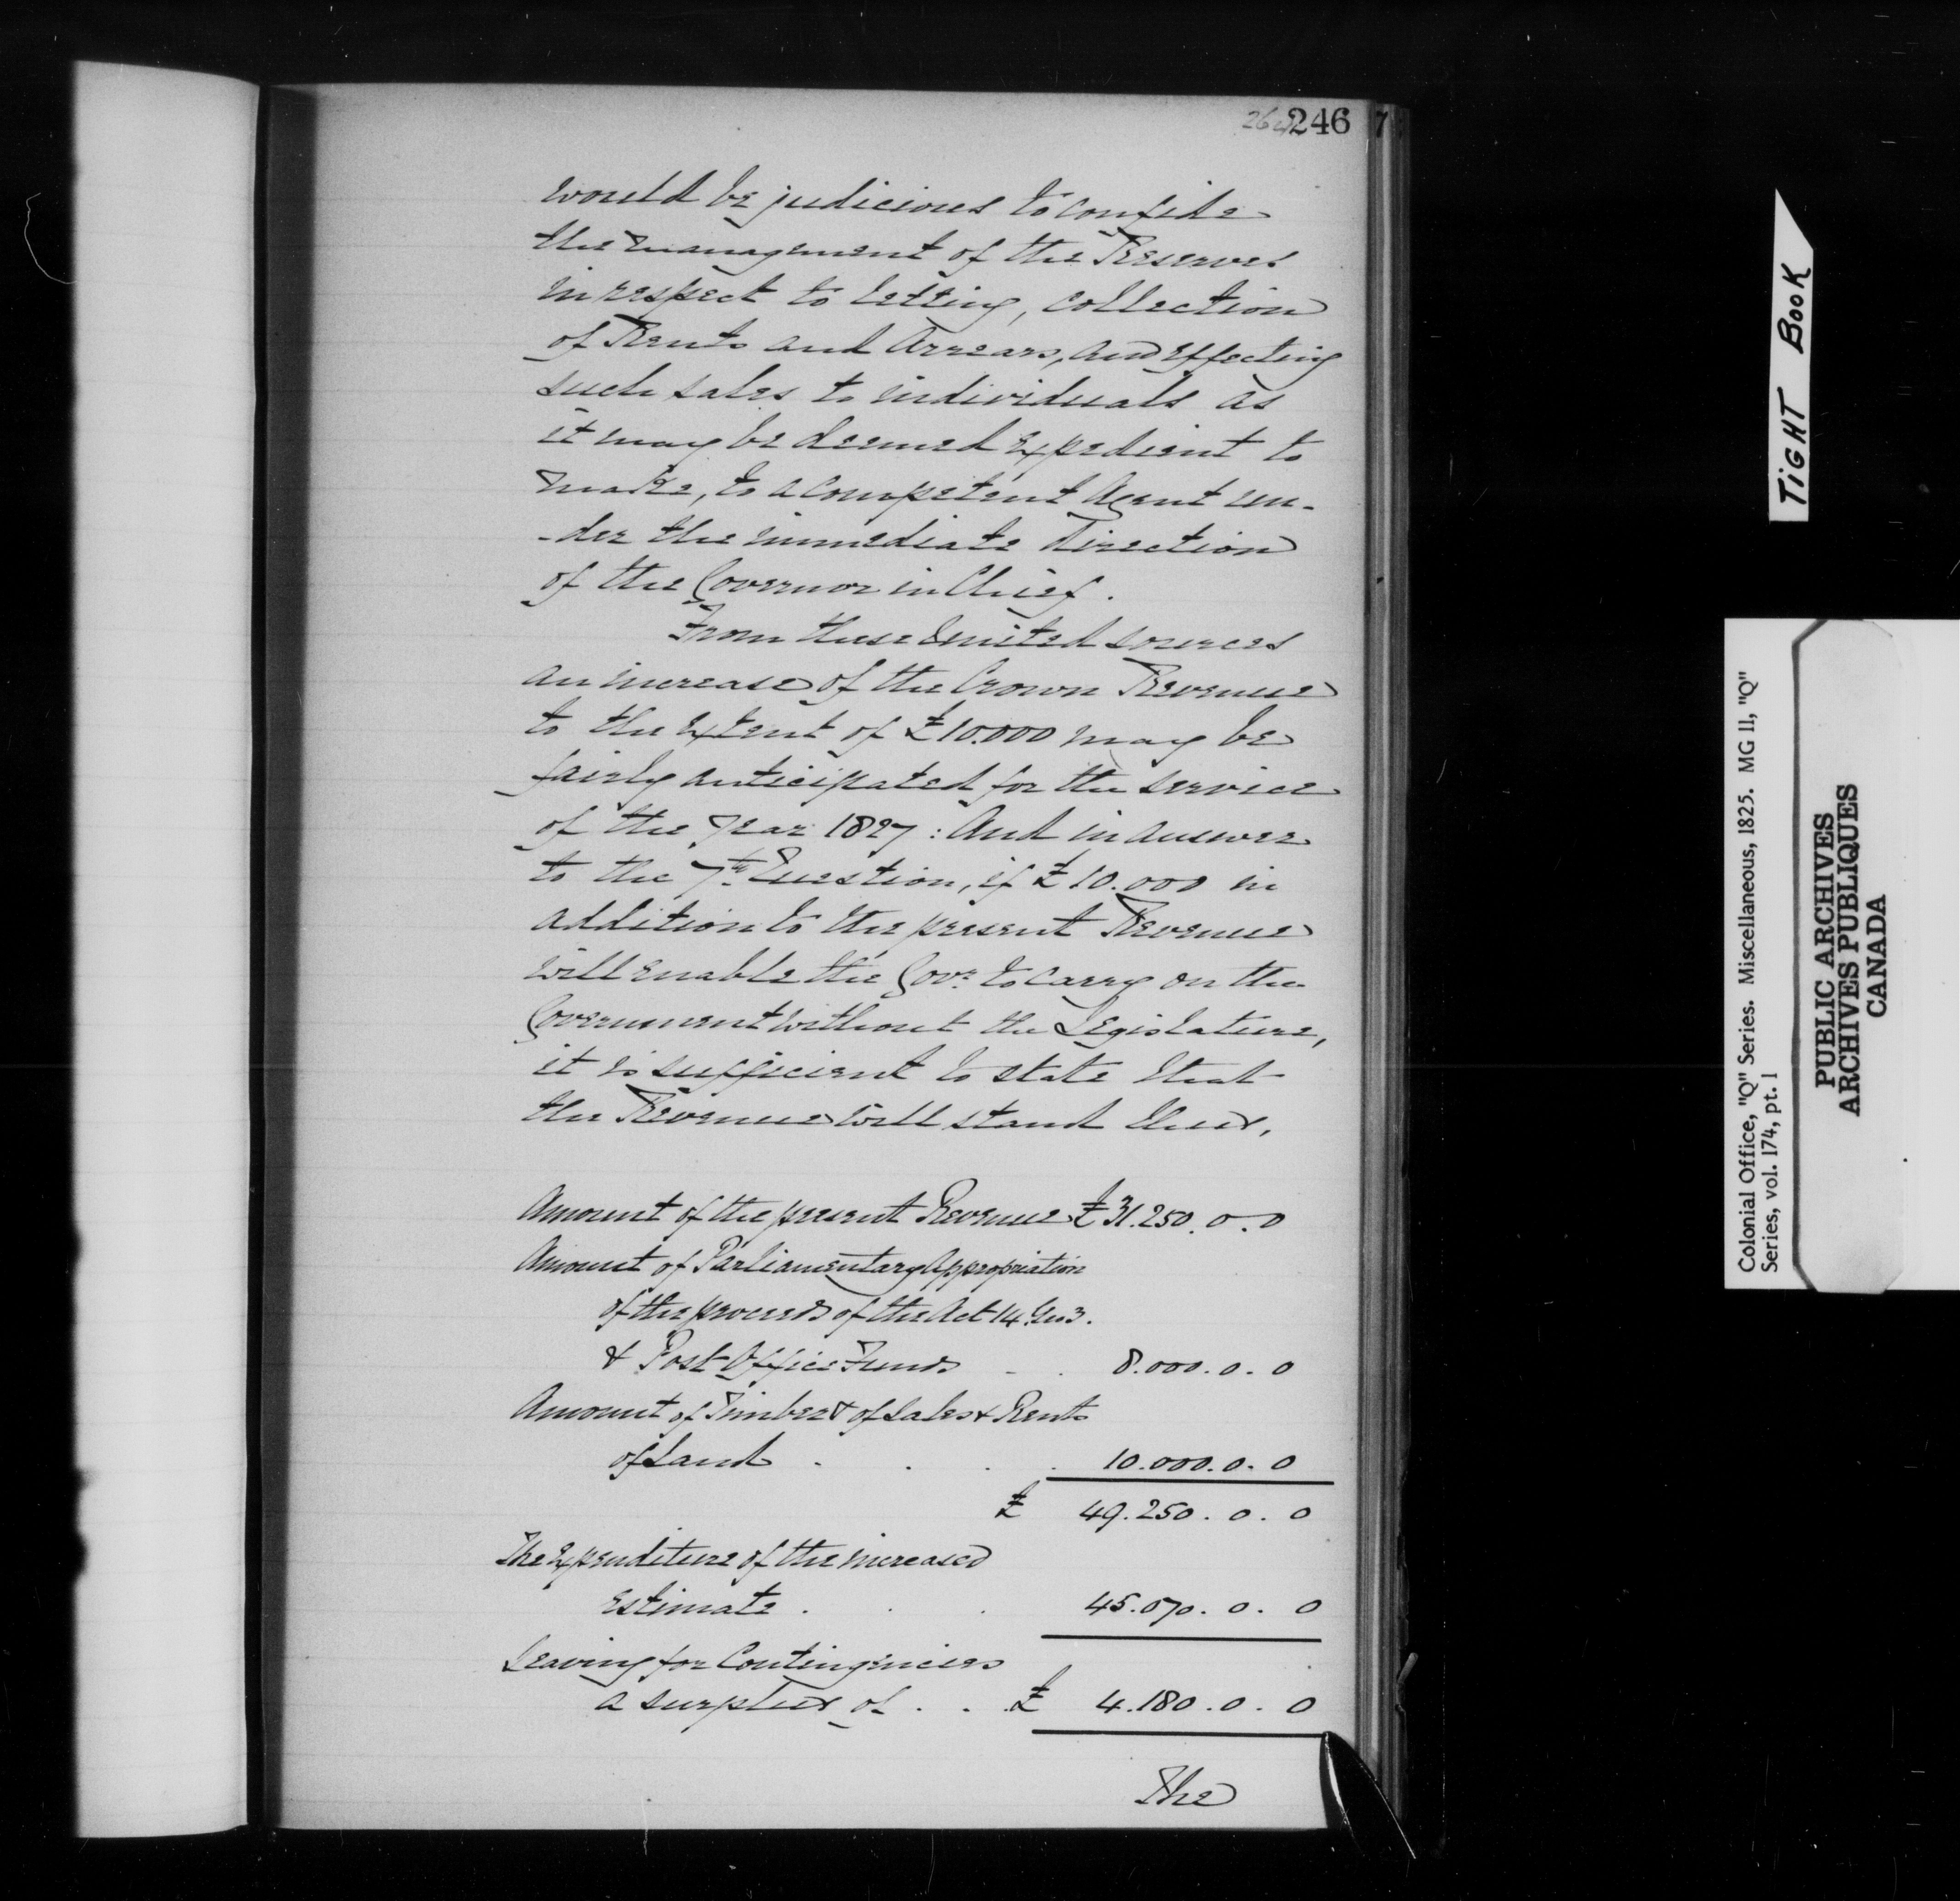 246
would be judicious to confide
the management of the Reserves
in respect to letting, collection
of Rents and Arrears, and effecting
such sales to individuals as
it may be deemed expedient to
make, to a competent Agent un-
-der the immediate direction
of the Governor in Chief.
From these limited sources
an increase of the Crown Revenue
to the extent of £10.000 may be
fairly anticipated for the service
of the year 1827: And in answer
to the 7th. Question, if £10.000 in
addition to the present Revenue
will enable the Govr. to carry on the
Government without the Legislature,
it is sufficient to state that
the Revenue will stand thus,
Amount of the present Revenue £31.250.0.0
Amount of Parliamentary Appropriation
of the proceeds of the Act 14. Geo 3.
& Post Office Funds . . 8.000.0.0
Amount of Timber & of Sales & Rents
of Land . . . . 10.000.0.0
£ 49.250.0.0
The Expenditure of the increased
Estimate . . . 45.070.0.0
Leaving for Contingencies
a surplus of . . . £ 4.180.0.0
The
TIGHT BOOK
Colonial Office, "Q" Series. Miscellaneous, 1825. MG 11, "Q"
Series, vol. 174, pt. 1
PUBLIC ARCHIVES
ARCHIVES PUBLIQUES
CANADA